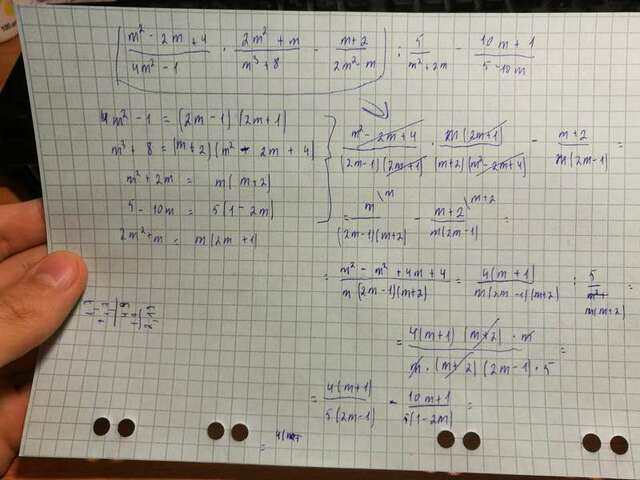 ( (m² - 2m + 4)/(4m² - 1) · (2m² + m)/(m³ + 8) - (m + 2)/(2m² - m) ) : 5/(m² + 2m) - (10m + 1)/(5 - 10m)
4m² - 1 = (2m - 1)(2m + 1)
m³ + 8 = (m + 2)(m² - 2m + 4)
m² + 2m = m(m + 2)
5 - 10m = 5(1 - 2m)
2m² + m = m(2m + 1)
(m² - 2m + 4)/((2m - 1)(2m + 1)) · m(2m + 1)/((m + 2)(m² - 2m + 4)) - (m + 2)/(m(2m - 1)) =
= m\m/((2m - 1)(m + 2)) - (m + 2)\m+2/(m(2m - 1)) =
= (m² - m² + 4m + 4)/(m(2m - 1)(m + 2)) = 4(m + 1)/(m(2m - 1)(m + 2)) : 5/(m(m + 2)) =
= 4(m + 1)(m + 2) · m/(m · (m + 2)(2m - 1) · 5) =
= 4(m + 1)/(5(2m - 1)) - (10m + 1)/(5(1 - 2m)) =
= 4(m